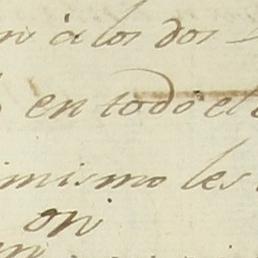 n à los dos
en todo el
imismo les
on
en